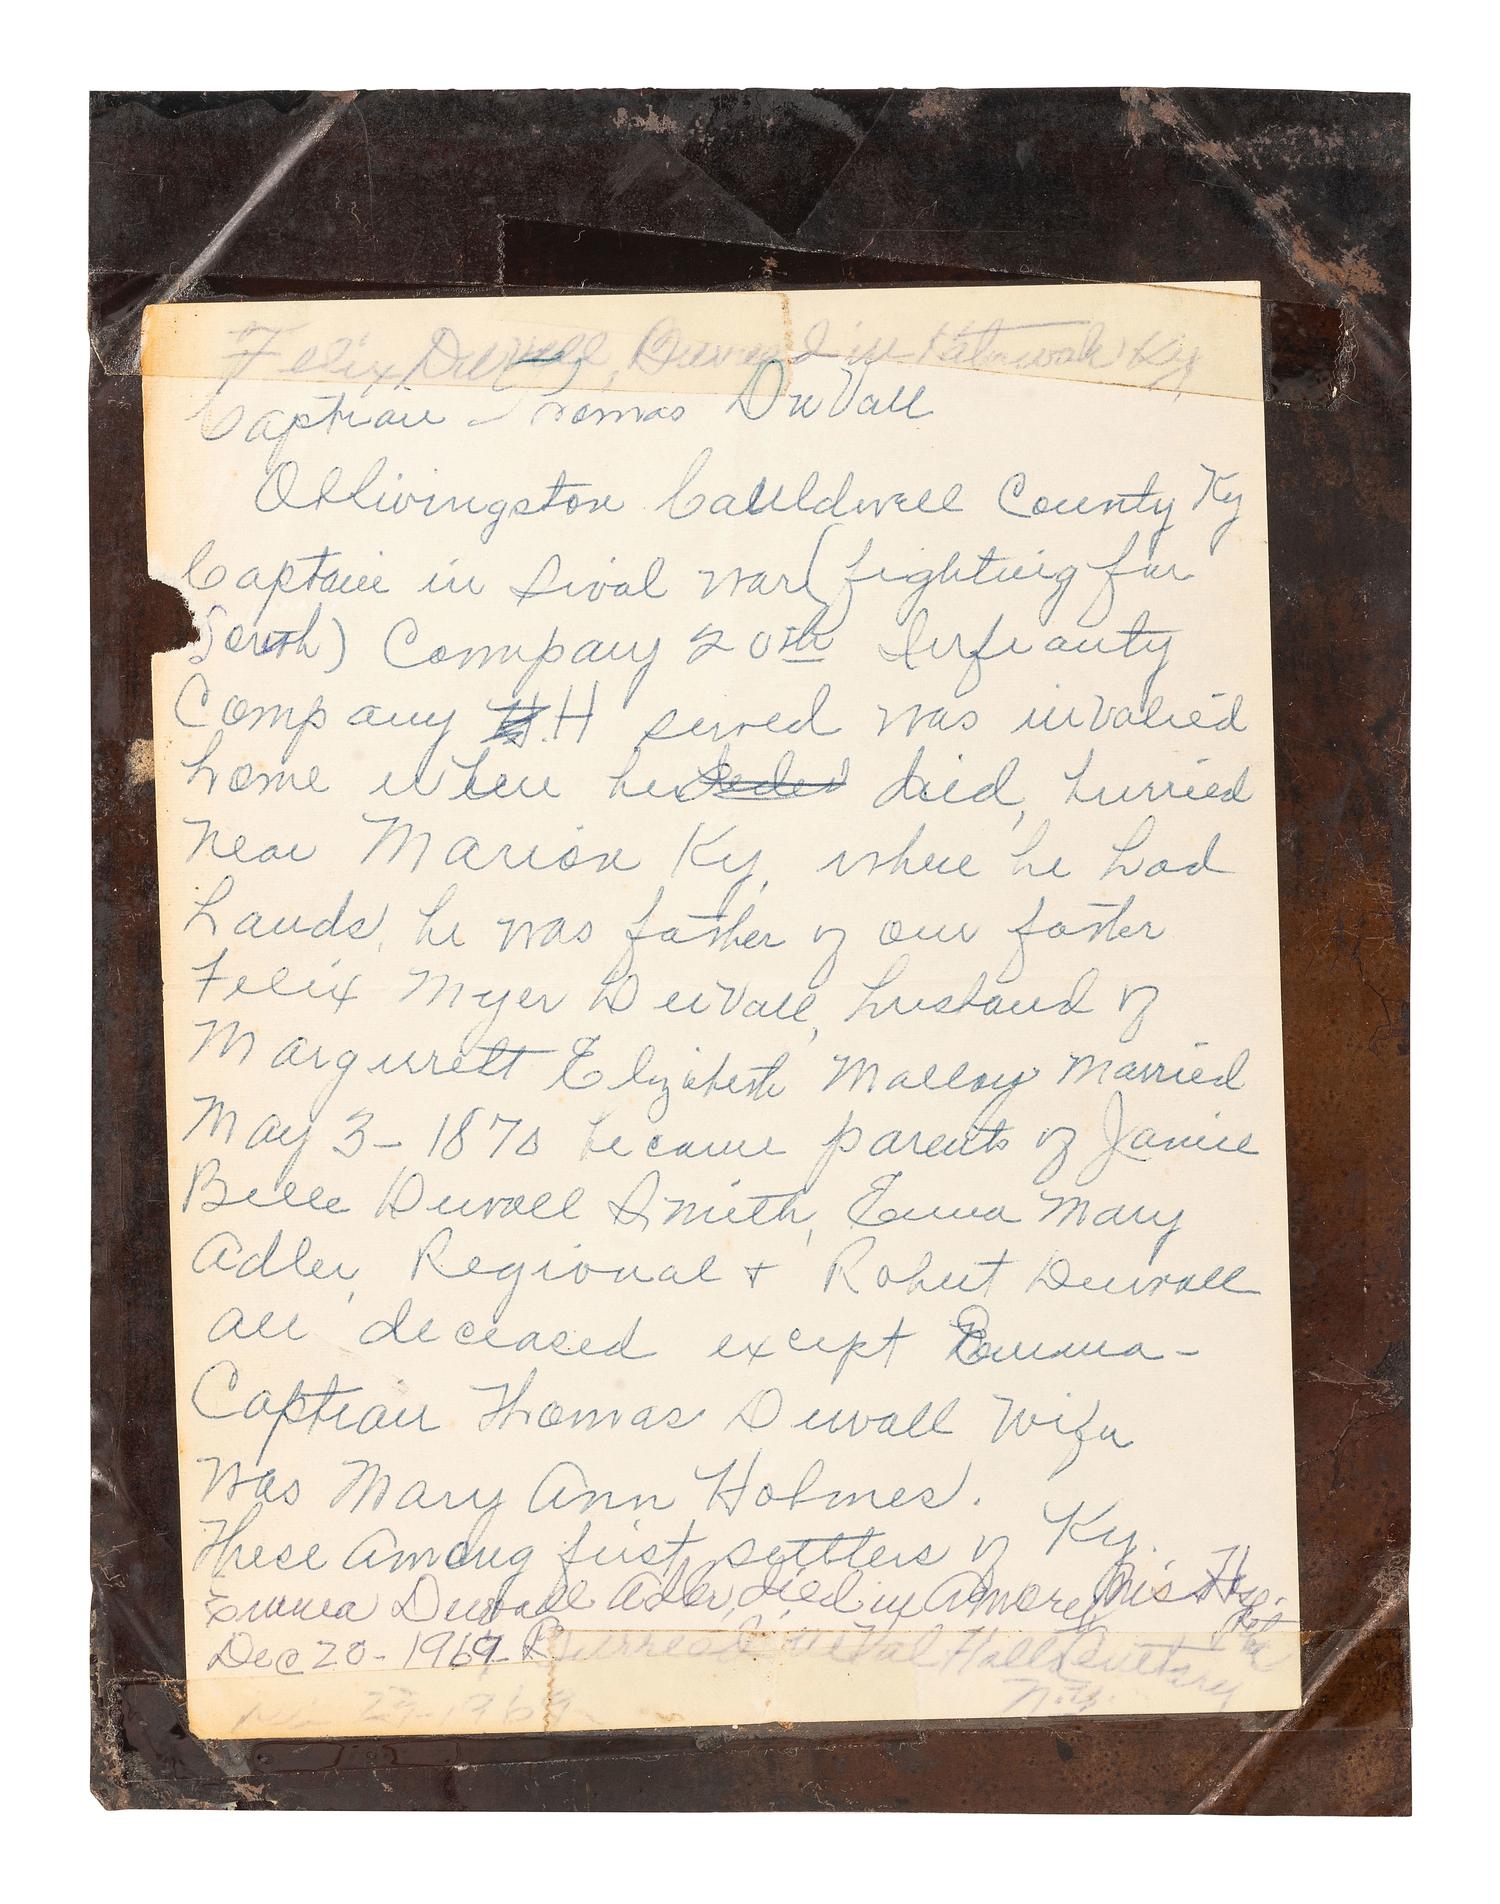 Felix Duvall, Burried in Kutawah Ky,
Captian Thomas DuVall
Of Livingston Cauldwell County Ky
Captain in Sival war (fighting for
South) Company 20th Infranty
Company H served was invalied
home when he died, burried
near Marion Ky, where he had
lands, he was father of our father
Felix Myer DuVall, husband of
Margurett Elizabeth Malloy Married
May 3 - 1870 became parents of Janie
Belle Duvall Smith, Emma Mary
Adler, Regional + Robert Duvall
all deceased except Emma -
Captian Thomas Duvall Wife
was Mary Ann Holmes.
These Among first settlers of Ky.
Emma Duvall Adler, died in Hos-
Dec 20 - 1969 Burried Val Halla
1969 N.Y.